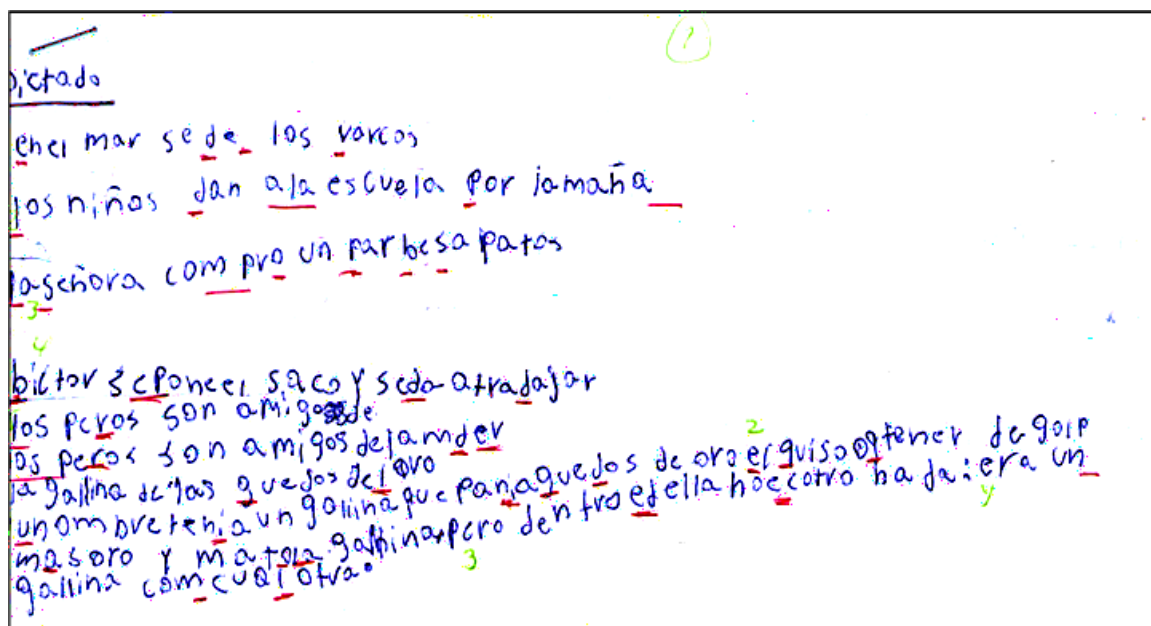 Dictado
enel mar se de los varcos
los niños dan ala escuela por jamaña
laseñora com pro un par besa patos
bictor seponeel saco y seda atradajar
los peros son amigos de
los peros son amigos dejamder
la gallina de las guedos del oro
unombretenia un gallina que pania guedos de oro el quiso odtener de golp
masoro y matola gallina pero dentro edella no ecotro nada: era un
gallina comcual otra.